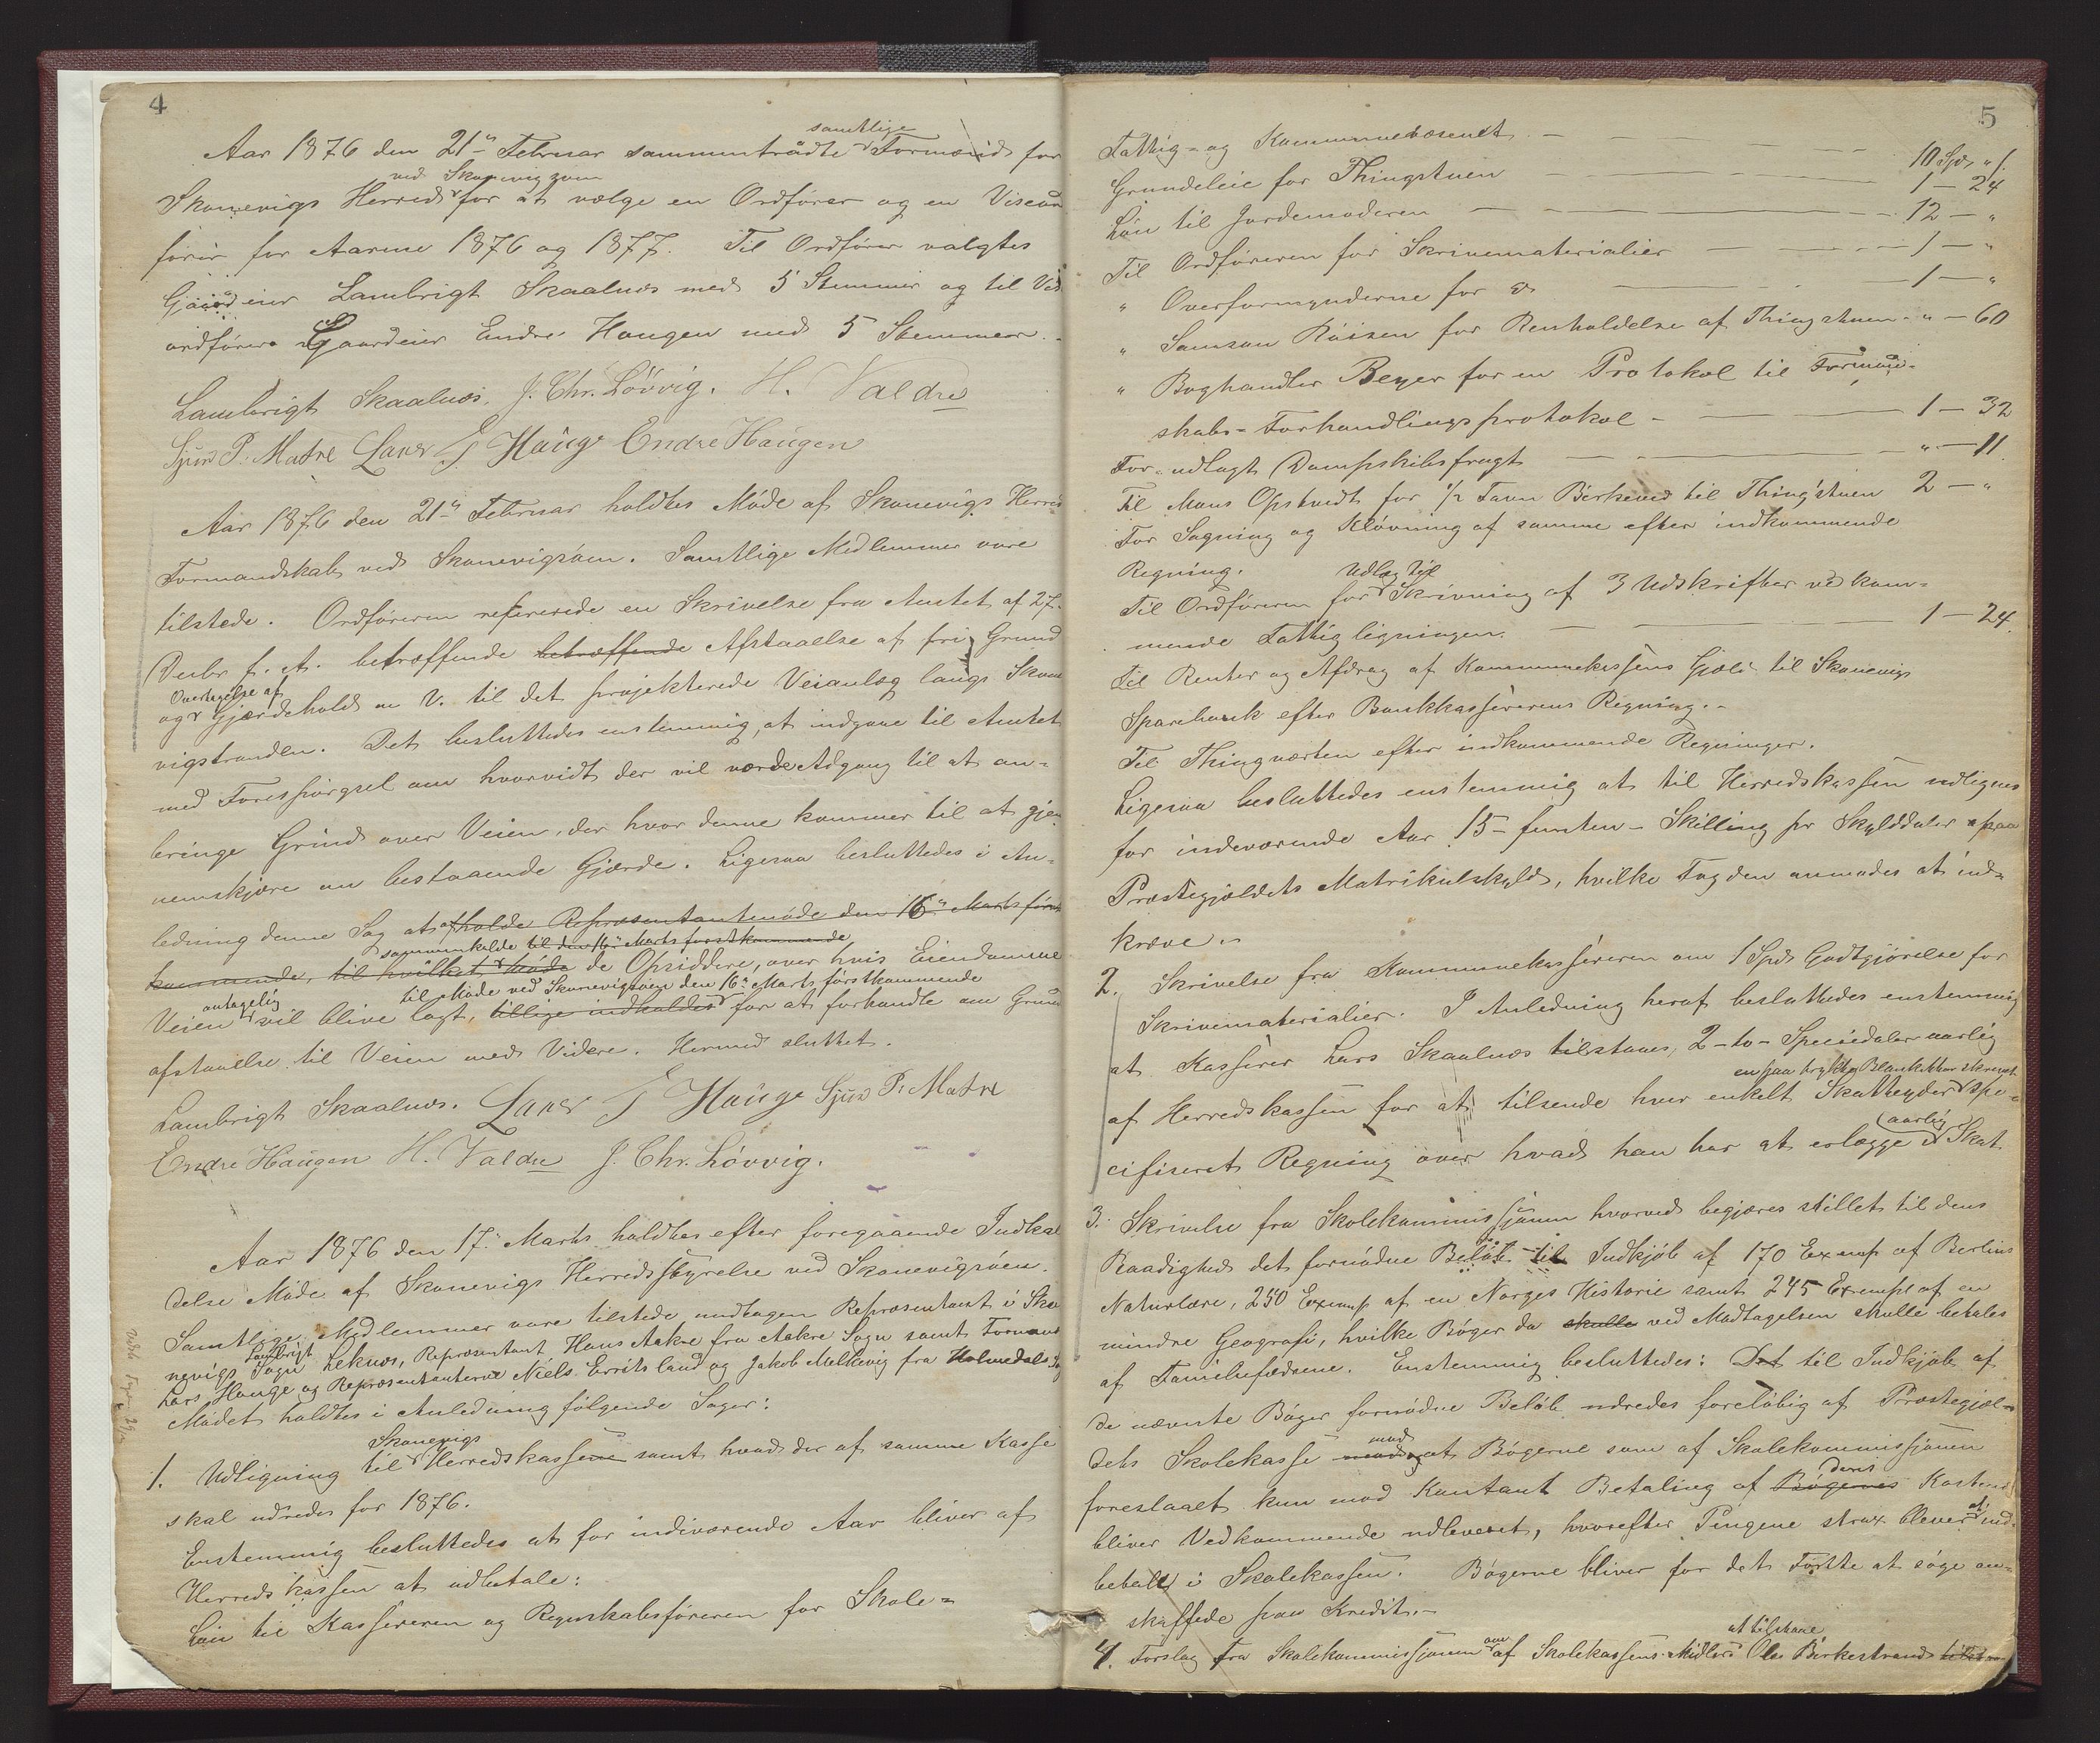 4
samtlige
Aar 1876 den 21de Februar sammentrådte Formænd for
ved Skonevigsøen
Skonevigs Herred for at vælge en Ordfører og en Viseord
fører for Aarene 1876 og 1877. Til Ordfører valgtes
Gaardeier Lambrigt Skaalnes med 5 Stemmer og til Vis
ordfører Gaardeier Endre Haugen med 5 Stemmer.
Lambrigt Skaalnes. J. Chr. Løvvig. H. Valdre
Sjur P. Matre Lars J Hauge Endre Haugen
Aar 1876 den 21de Februar holdtes Møde af Skonevigs Herred
Formandskab ved Skonevigsøen. Samtlige Medlemmer vare
tilstede. Ordføreren refererede en Skrivelse fra Amtet af 27.
Decbr f. A. betræffende betræffende Afstaaelse af fri Grund
Overtagelse af
og Gjærdehold m V. til det projekterede Veianlæg langs Skone
vigstranden. Det besluttedes enstemmig, at indgaae til Amtet
med Forespørgsel om hvorvidt der vil vorde Adgang til at an-
bringe Grind over Veien, der hvor denne kommer til at gjen
nemskjære nu bestaaende Gjærde. Ligesaa besluttedes i An-
ledning denne Sag at afholde Repræsentantmøde den 16de Marts først
sammenkalde til den 16de Marts førstkommende
kommende, til hvilket Møde de Opsiddere, over hvis Eiendomme
antagelig til Møde ved Skonevigsøen den 16de Marts førstkommende
Veien vil blive lagt, tillige indkaldes for at forhandle om Grund
afstaaelse til Veien med Videre. Hermed sluttet.
Lambrigt Skaalnes. Lars J Hauge Sjur P. Matre
Endre Haugen H. Valdre J. Chr. Løvvig.
Aar 1876 den 17de Marts holdtes efter foregaaende Indkal
delse Møde af Skonevigs Herredsstyrelse ved Skonevigsøen.
Samtlige Medlemmer vare tilstede undtagen Repræsentant i Sko
Lambrigt
nevigs Sogn Leknes, Repræsentant Hans Aakre fra Aakre Sogn samt Formand
Lars Hauge og Repræsentanterne Niels Erritsland og Jakob Milkevig fra Holmedals So
Mødet holdtes i Anledning følgende Sager:
Skonevigs
1. Udligning til Herredskassene samt hvad der af samme Kasse
skal udredes for 1876.
Enstemmig besluttedes at for indeværende Aar bliver af
Herredskassen at udbetale:
Løn til Kassereren og Regnskabsføreren for Skole-
5
Fattig- og Kommunevæsenet - 10 Spd. " ſ.
Grundeleie for Thingstuen 1 - 24
Løn til Jordemoderen 12 - "
Til Ordføreren for Skrivematerialier 1 - "
" Overformynderne for do 1 - "
" Samson Røisen for Renholdelse af Thingstuen " - 60
" Boghandler Beyer for en Protokol til Formand-
skabs-Forhandlingsprotokol 1 - 32
For udlagt Dampskibsfragt " - 11
Til Mons Opstvedt for 1/2 Favn Birkeved til Thingstuen 2 - "
For Sagning og Kløvning af samme efter indkommende
Regning.
Udlæg til
Til Ordføreren for Skrivning af 3 Udskrifter vedkom-
mende Fattigligningen. 1 - 24.
Til Renter og Afdrag af Kommunekassens Gjæld til Skonevigs
Sparebank efter Bankkassererens Regning.-
Til Thingverten efter indkommende Regninger.
Ligesaa besluttedes enstemmig at til Herredskassen udlignes
for indeværende Aar 15 - femten - Skilling pr Skylddaler paa
Præstegjældets Matrikulskyld, hvilke Fogden anmodes at ind-
kræve.-
2. Skrivelse fra Kommunekassereren om 1 Spd Godtgjørelse for
Skrivematerialier. I Anledning heraf besluttedes enstemmig
at Kasserer Lars Skaalnes tilstaaes, 2 - to - Speciedaler aarlig
en paa trykte Blanketter skrevet
af Herredskassen for at tilsende hver enkelt Skatteyder spe-
aarlig
cifiseret Regning over hvad han har at erlægge i Skat
3. Skrivelse fra Skolekommissjonen hvorved begjæres stillet til dens
Raadighed det fornødne Beløb til Indkjøb af 170 Exemp af Berlins
Naturlære, 250 Exemp af en Norges Historie samt 245 Exempl af en
mindre Geografi, hvilke Bøger da skulle ved Modtagelsen skulle betales
af Familiefædrene. Enstemmig besluttedes: Det til Indkjøb af
de nævnte Bøger fornødne Beløb udredes foreløbig af Præstegjæl-
mod
dets Skolekasse at Bøgerne som af Skolekommissjonen
deres
foreslaaet kun mod Kontant Betaling af Bøgernes Kostend
bliver Vedkommende udleveret, hvorefter Pengene strax blever at ind-
betale i Skolekassen. Bøgerne bliver for det Første at søge an-
skaffede paa Kredit.-
om at tilstaae
4. Forslag fra Skolekommissjonen af Skolekassens Midler Ole Birkestrand